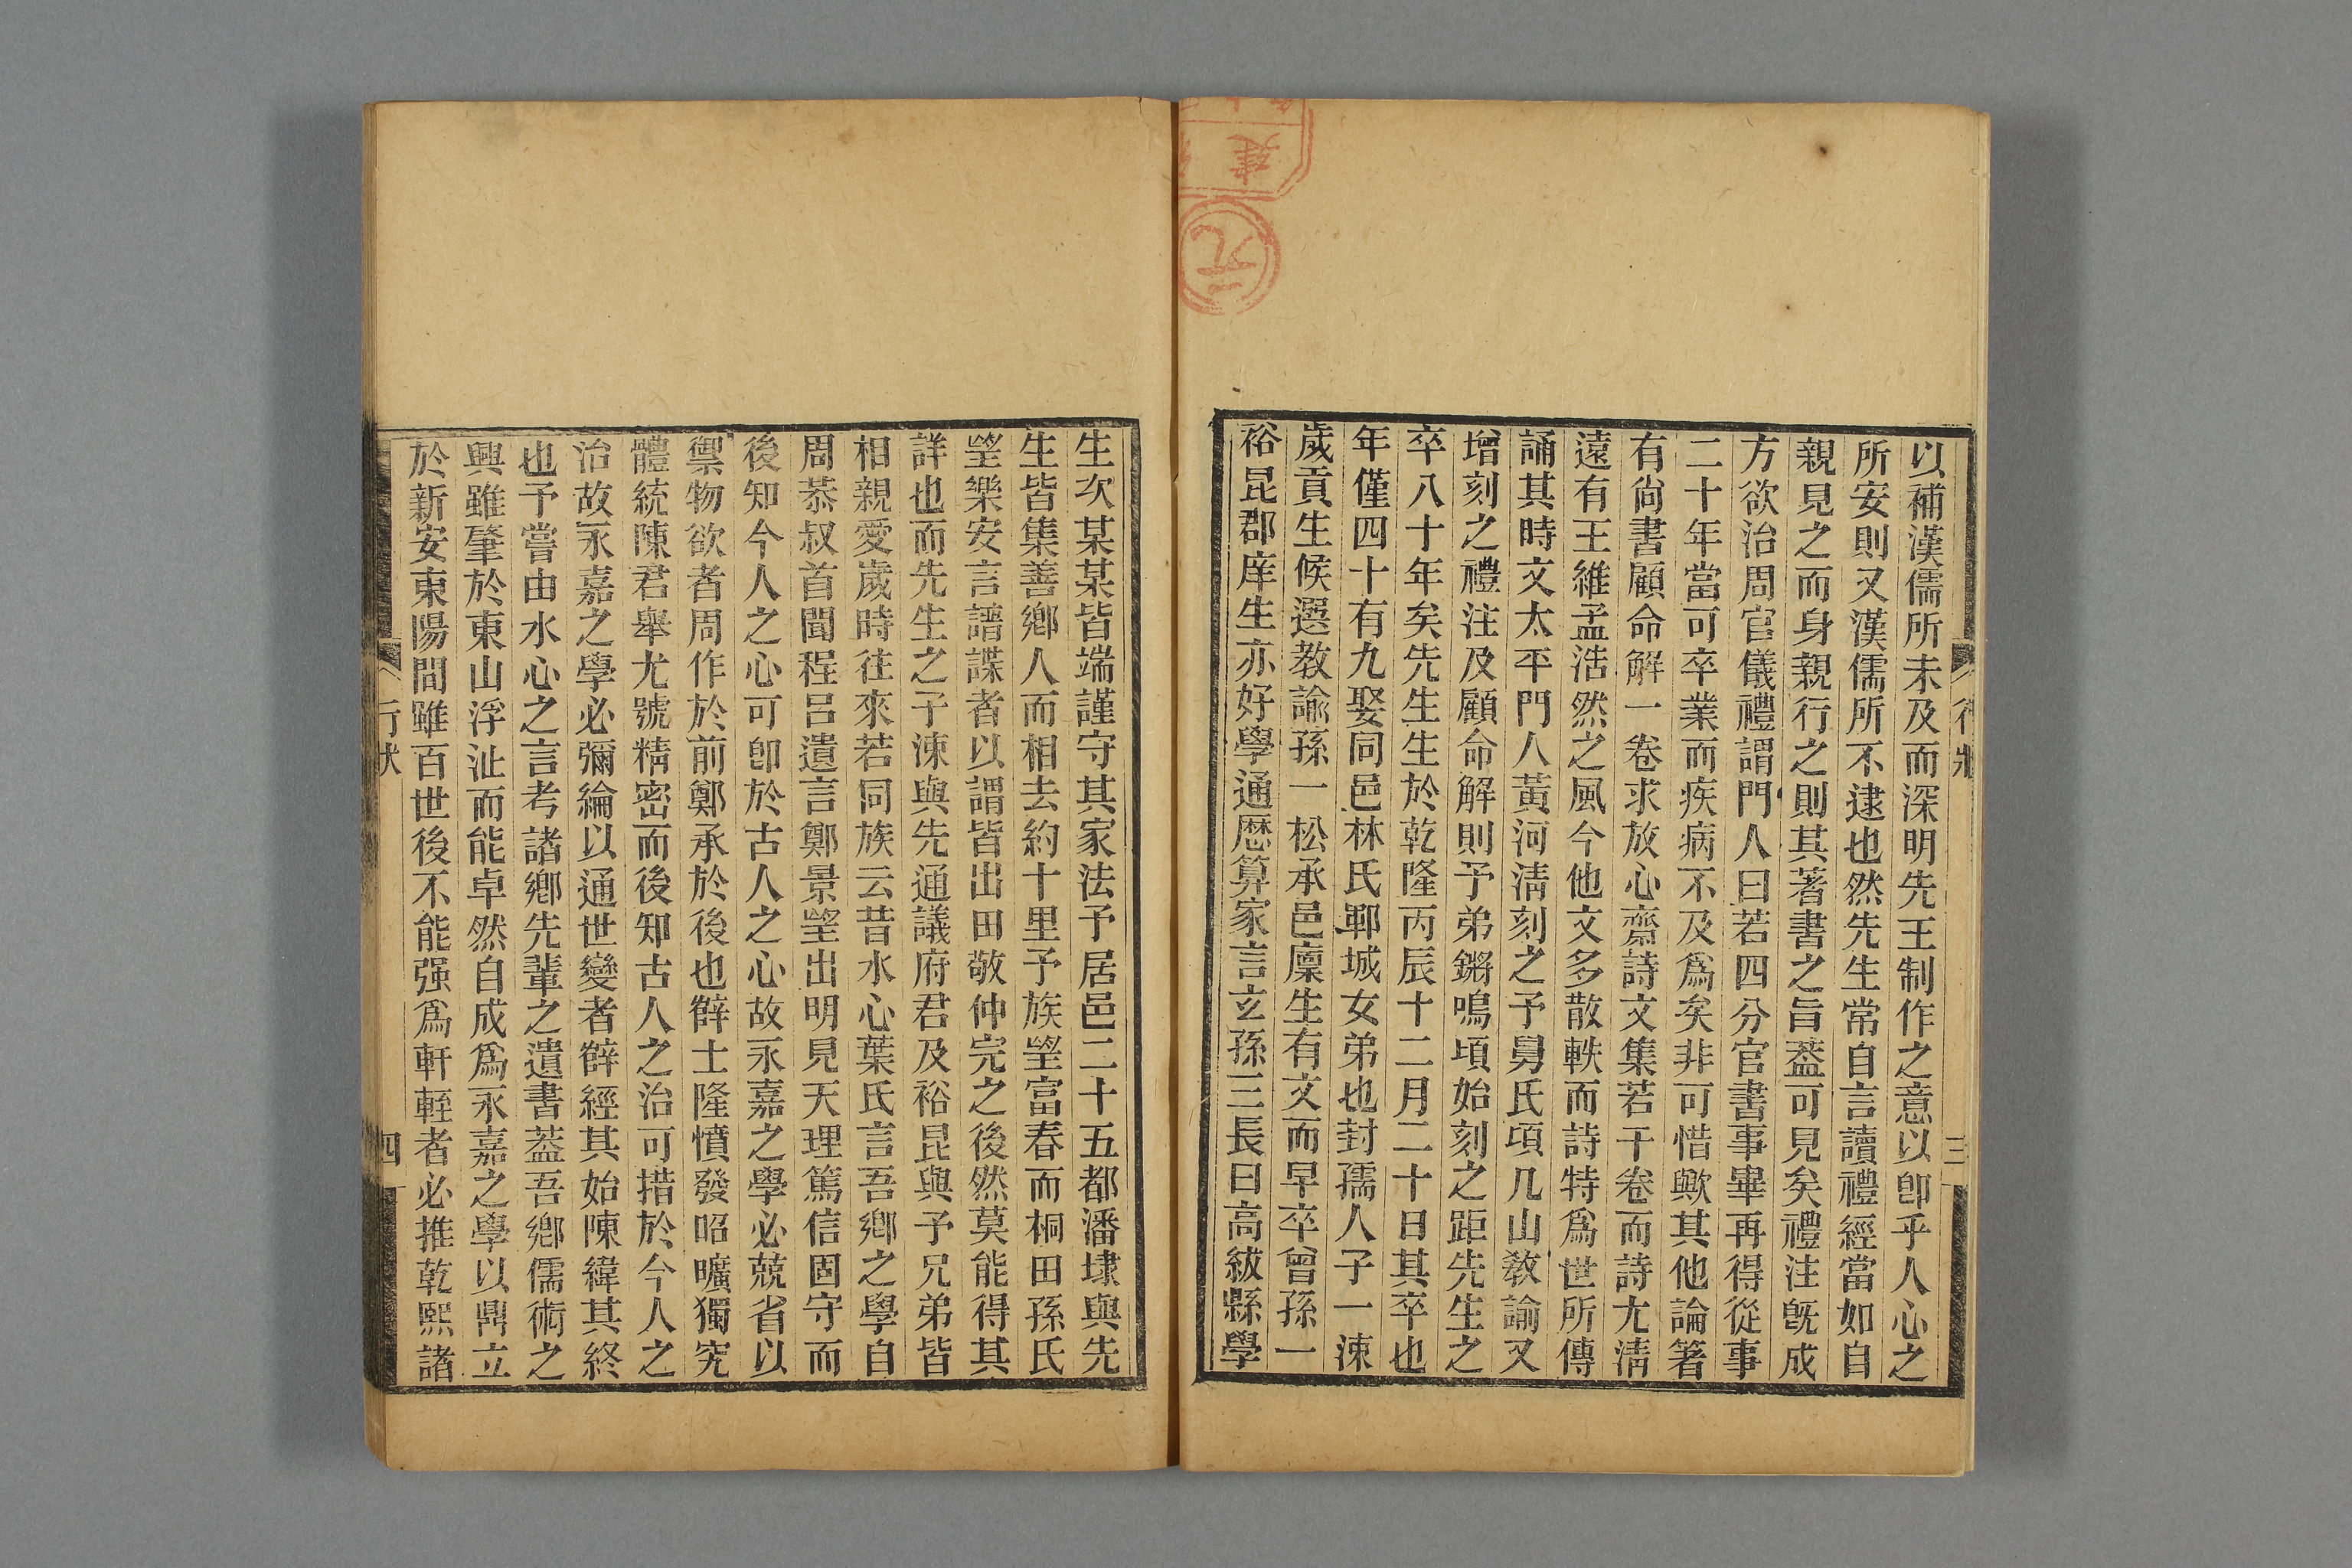 以補漢儒所未及而深明先王制作之意以卽乎人心之
所安則又漢儒所不逮也然先生常自言讀禮經當如自
親見之而身親行之則其著書之旨葢可見矣禮注旣成
方欲治周官儀禮謂門人曰若四分官書事畢再得從事
二十年當可卒業而疾病不及爲矣非可惜歟其他論箸
有尙書顧命解一卷求放心齋詩文集若干卷而詩尤淸
遠有王維孟浩然之風今他文多散軼而詩特爲世所傳
誦其時文太平門人黃河淸刻之予舅氏項几山敎諭又
增刻之禮注及顧命解則予弟鏘鳴頃始刻之距先生之
卒八十年矣先生生於乾隆丙辰十二月二十日其卒也
年僅四十有九娶同邑林氏鄆城女弟也封孺人子一涑
歲貢生候選教諭孫一松承邑廩生有文而早卒曾孫一
裕昆郡庠生亦好學通厯算家言玄孫三長曰高紱縣學
生次某某皆端謹守其家法予居邑二十五都潘埭與先
生皆集善鄕人而相去約十里予族朢富春而桐田孫氏
朢樂安言譜諜者以謂皆出田敬仲完之後然莫能得其
詳也而先生之子涑與先通議府君及裕昆與予兄弟皆
相親愛歲時往來若同族云昔水心葉氏言吾鄕之學自
周恭叔首聞程呂遺言鄭景朢出明見天理篤信固守而
後知今人之心可卽於古人之心故永嘉之學必兢省以
禦物欲者周作於前鄭承於後也薛士隆憤發昭曠獨究
體統陳君舉尤號精密而後知古人之治可措於今人之
治故永嘉之學必彌綸以通世變者薛經其始陳緯其終
也予嘗由水心之言考諸鄕先輩之遺書葢吾鄕儒術之
興雖肇於東山浮沚而能卓然自成爲永嘉之學以鼎立
於新安東陽間雖百世後不能强爲軒輊者必推乾熙諸
行狀
三
行狀
四